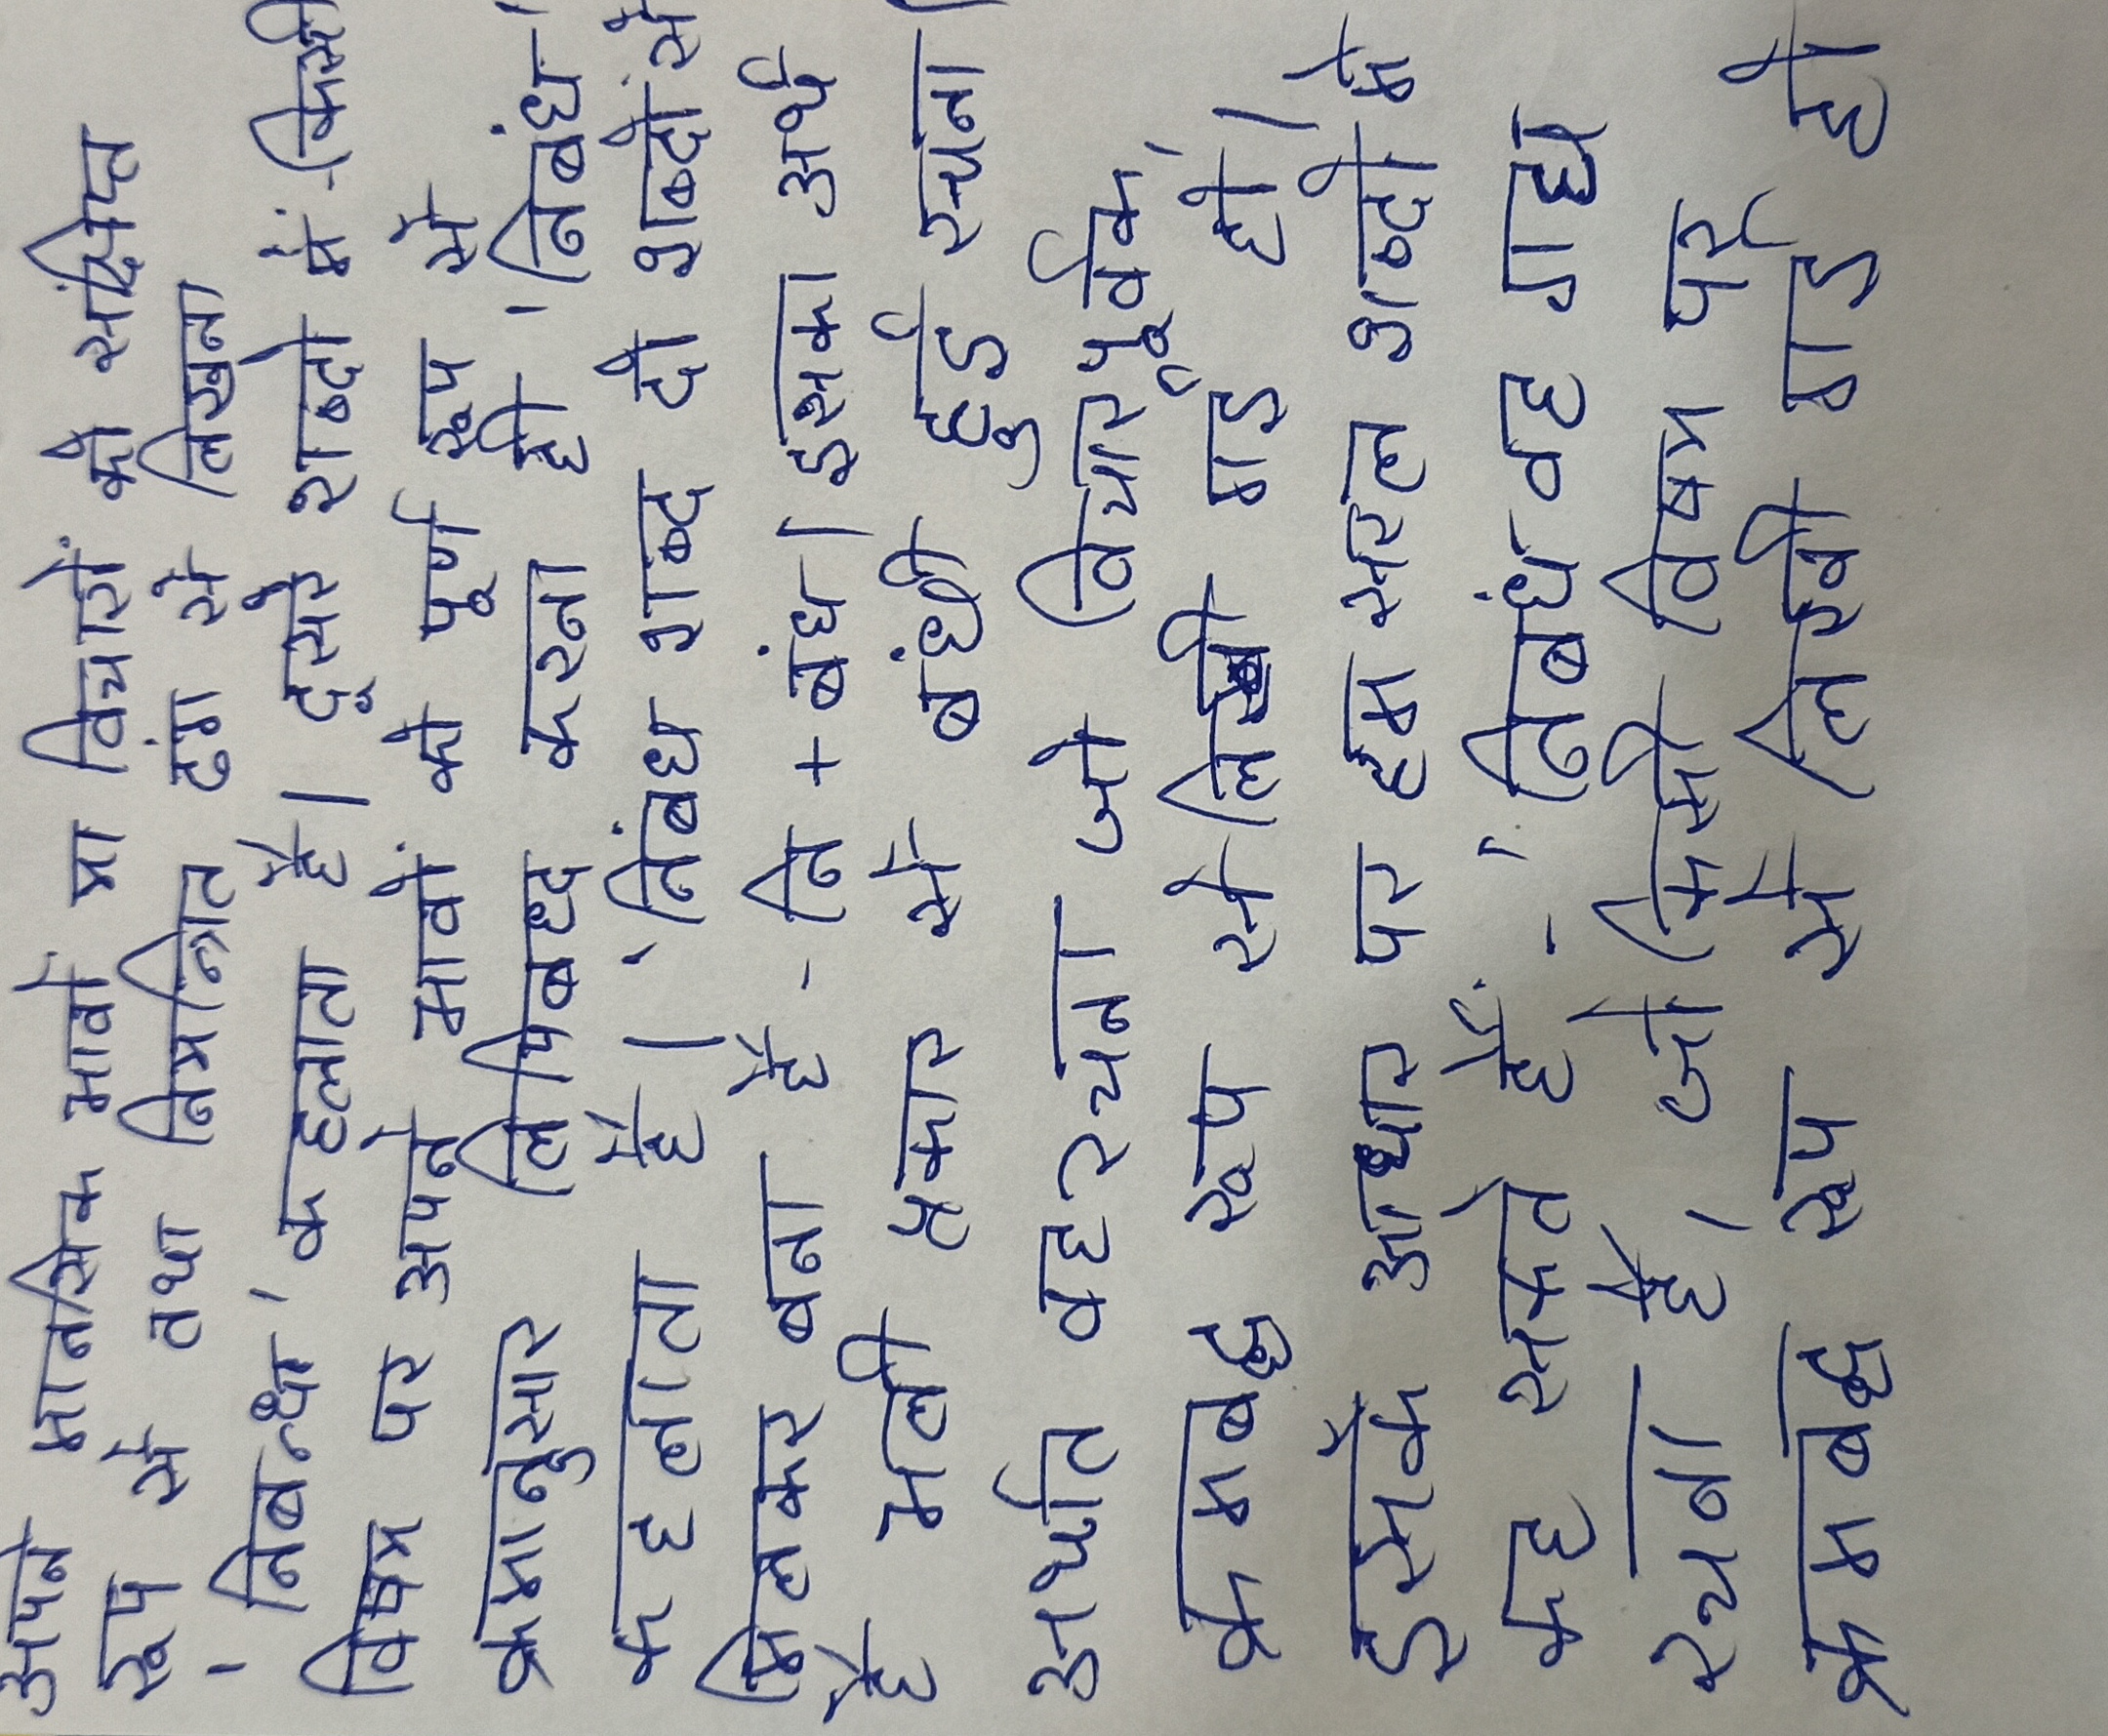 अपने मानसिक भावों या विचारों को संक्षिप्त
रूप से तथा नियन्त्रित ढंग से लिखना
'निबन्ध' कहलाता है। दूसरे शब्दों में - किसी
विषय पर अपने भावों को पूर्ण रूप से
क्रमानुसार लिपिबध्द करना ही 'निबंध'
कहलाता है। 'निबंध शब्द दो शब्दों से
मिलकर बना है - नि + बंध। इसका अर्थ
है भली प्रकार से बंधी हुई रचना।
अर्थात वह रचना जो विचारपूर्वक,
क्रमबद्ध रूप से लिखी गई हो।
इसके आधार पर हम सरल शब्दों में
कह सकते हैं: - 'निबंध वह गद्य
रचना है, जो किसी विषय पर
क्रमबद्ध रूप से लिखी गई हो